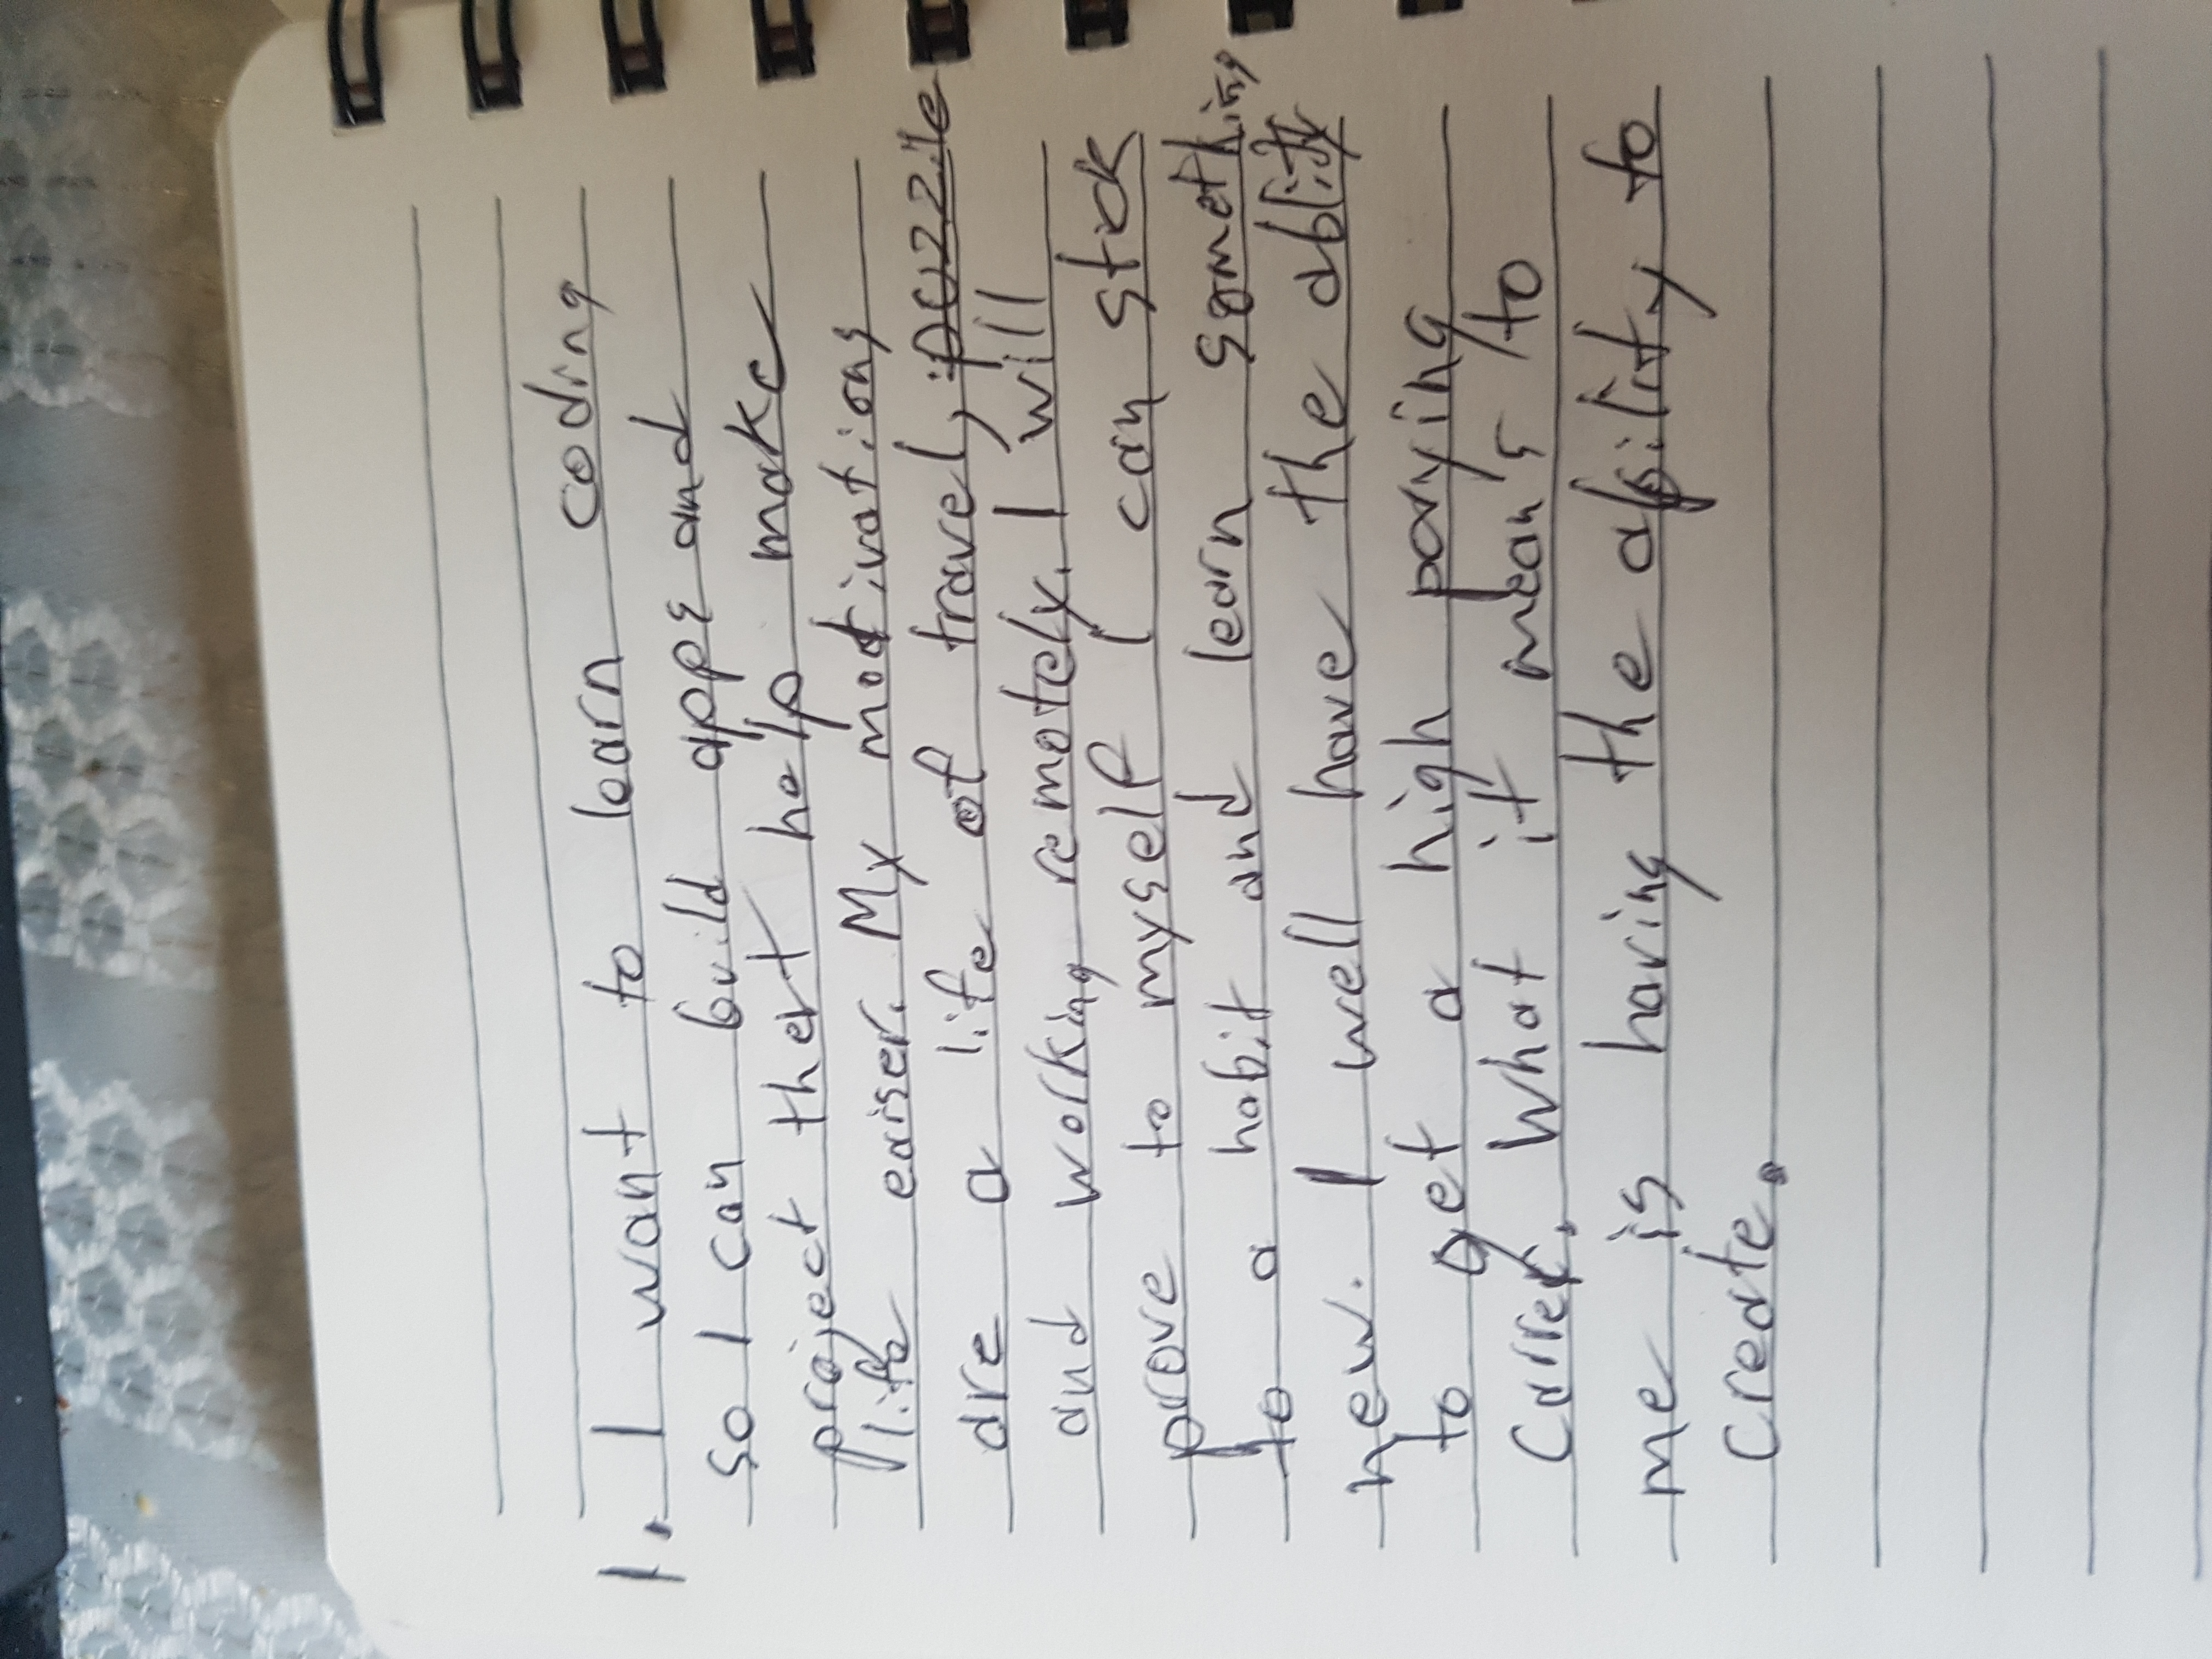 1. I want to learn coding
so I can build apps and
project that help make
life eaiser. My motivations
are a life of travel, puzzile
and working remotely. I will
prove to myself I can stick
to a habit and learn something
new. I well have the ablity
to get a high paying
carrer. What it mean's to
me is having the ability to
create.